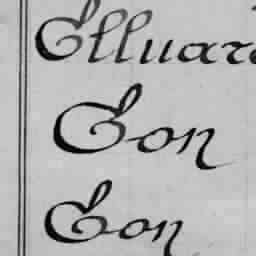 Elluar
Eon
Eon